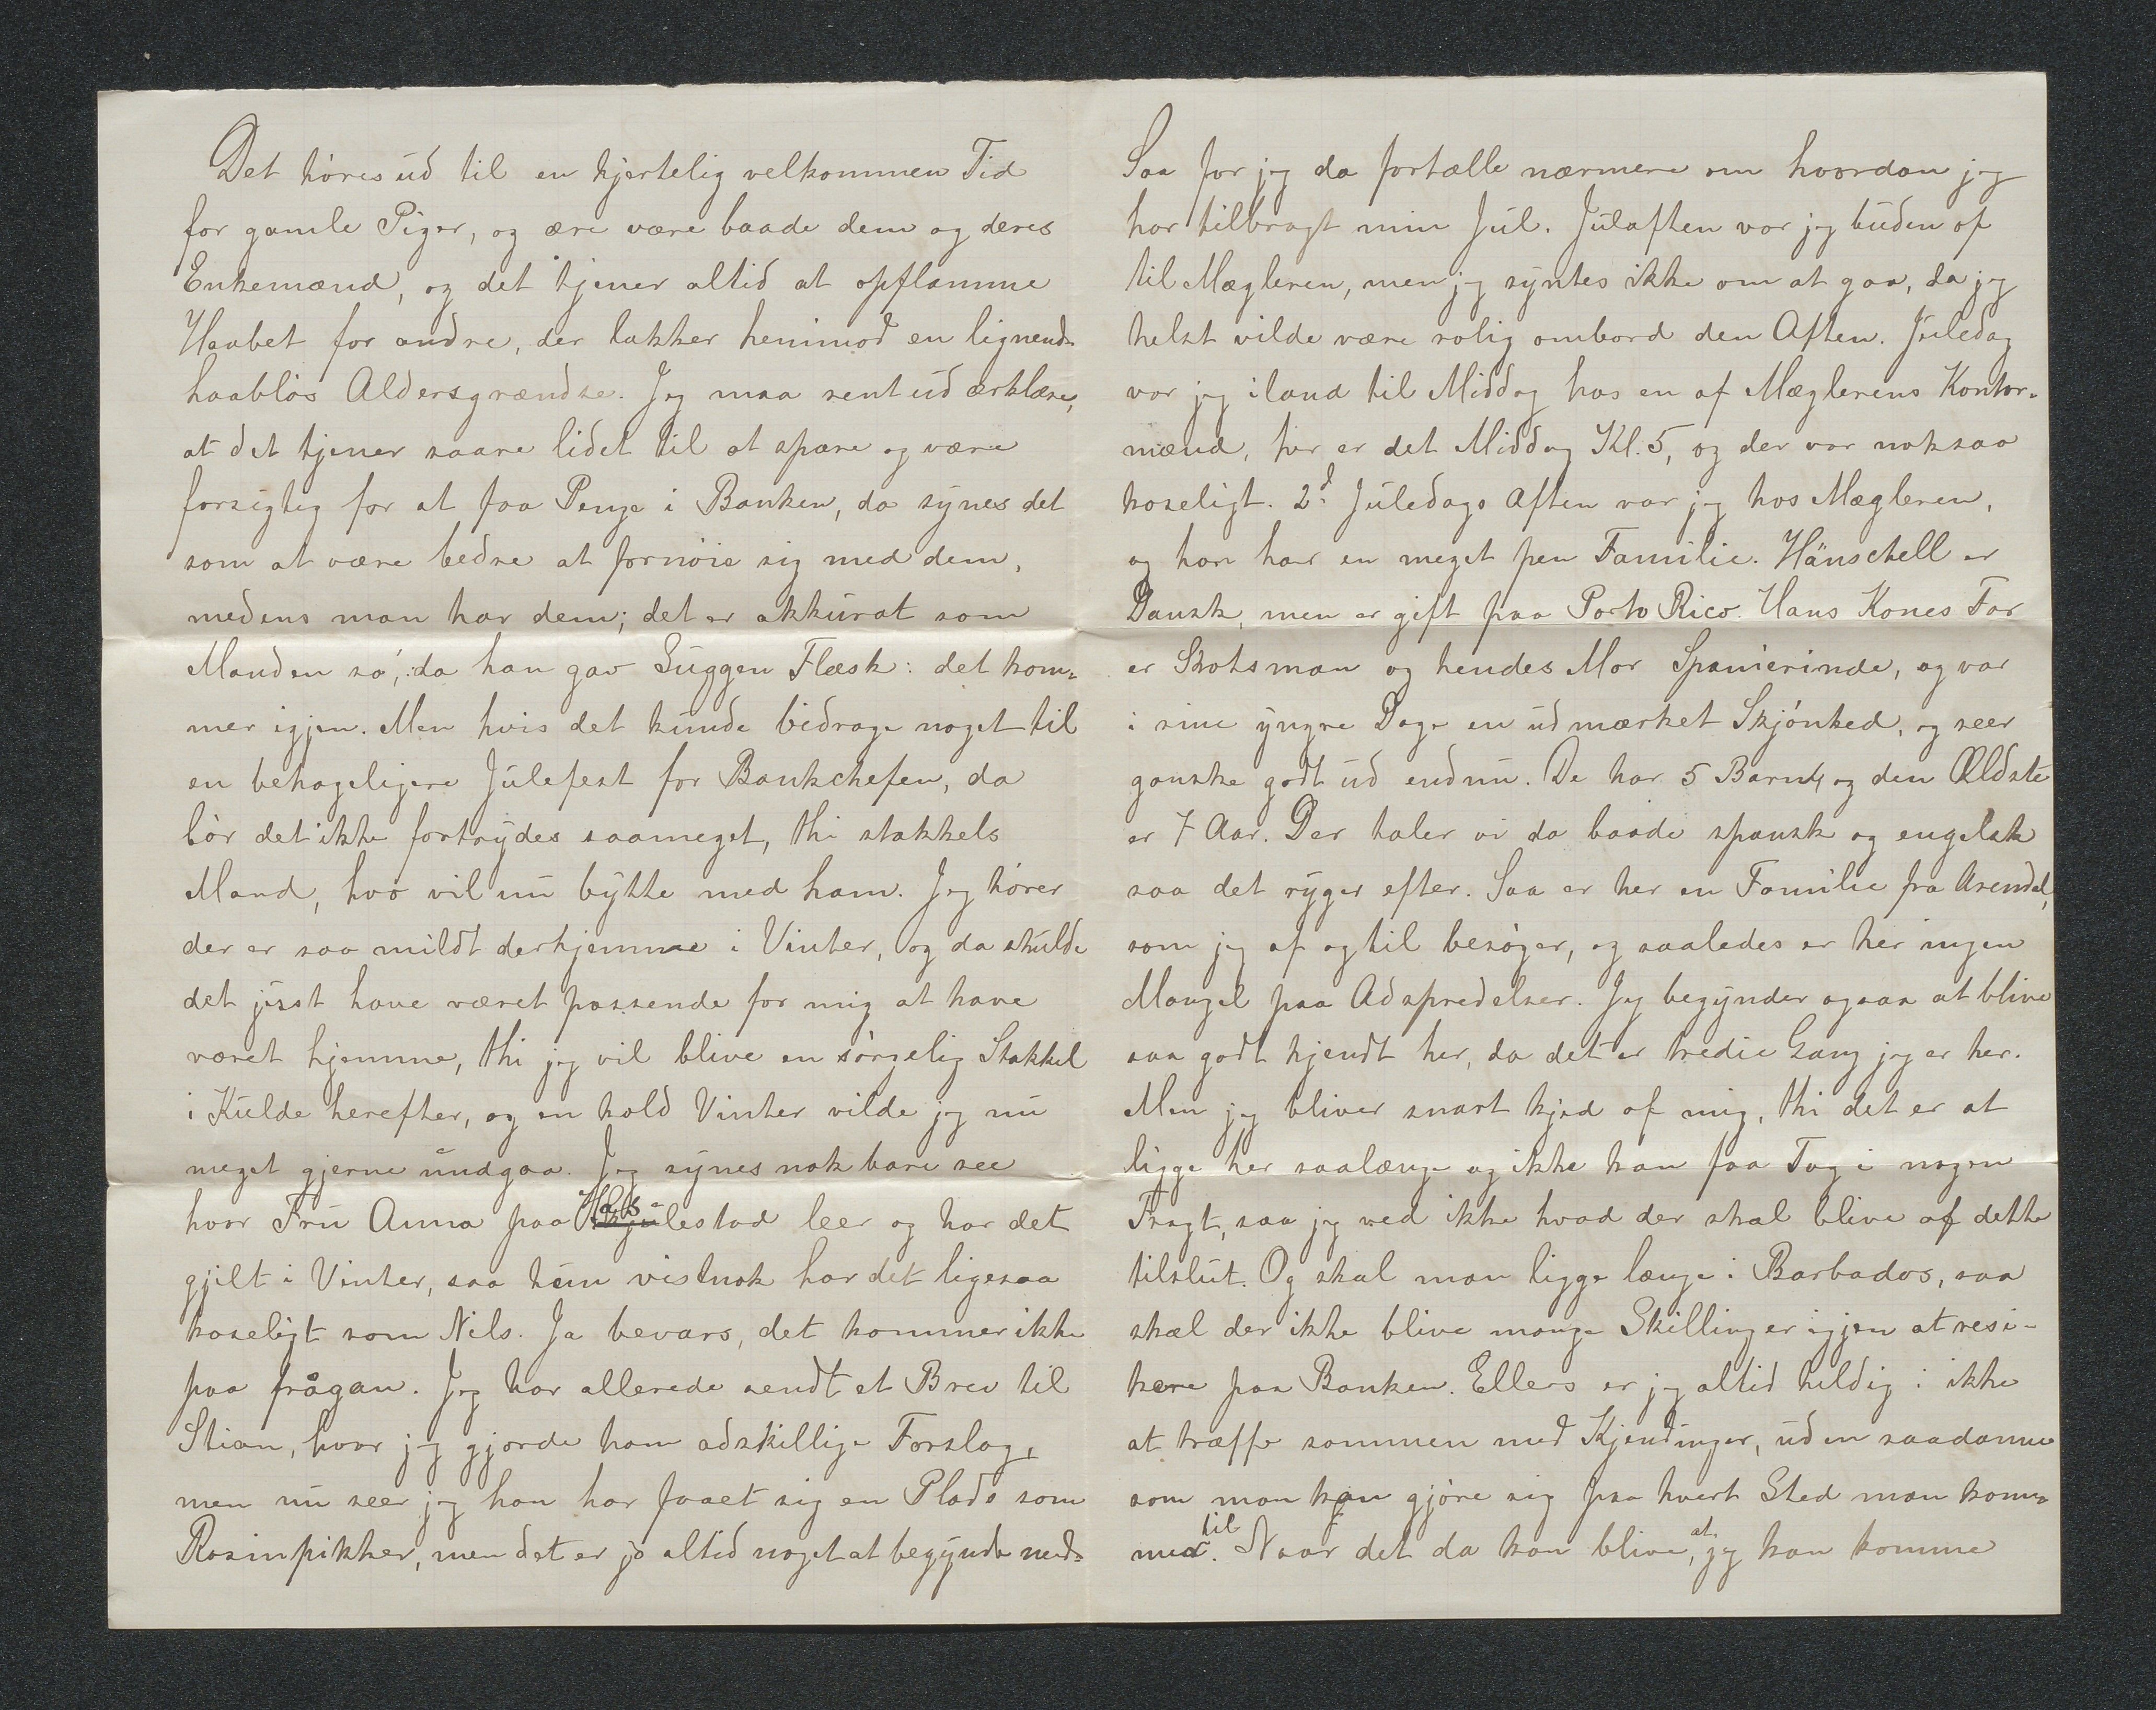 Det høres ud til en hjertelig velkommen Tid
for gamle Piger, og ære være baade dem og deres
Enkemænd, og det tjener altid at opflamme
Haabet for andre, der lakker henimod en lignende
haabløs Aldersgrændse. Jeg maa rent ud erklære,
at det tjener saare lidet til at spare og være
forsigtig for at faa Penge i Banken, da synes det
som at være bedre at fornøie sig med dem,
medens man har dem; det er akkurat som
Manden sa', da han gav Suggen Flæsk: det kom-
mer igjen. Men hvis det kunde bidrage noget til
en behageligere Julefest for Bankchefen, da
bør det ikke fortrydes saameget, thi stakkels
Mand, hvo vil nu bytte med ham. Jeg hører
der er saa mildt derhjemme i Vinter, og da skulde
det just have været passende for mig at have
været hjemme, thi jeg vil blive en sørgelig Stakkel
i Kulde herefter, og en kold Vinter vilde jeg nu
meget gjerne undgaa. Jeg synes nok bare see
hvor Fru Anna paa Hasselestad leer og har det
gjilt i Vinter, saa hun vistnok har det ligesaa
koseligt som Nils. Ja bevars, det kommer ikke
paa frågan. Jeg har allerede sendt et Brev til
Stian, hvor jeg gjorde ham adskillige Forslag,
men nu seer jeg han har faaet sig en Plads som
Rosinpikker, men det er jo altid noget at begynde med.
Saa for jeg da fortælle nærmere om hvordan jeg
har tilbragt min Jul. Julaften var jeg buden af
til Mægleren, men jeg syntes ikke om at gaa, da jeg
helst vilde være rolig ombord den Aften. Juledag
var jeg iland til Middag hos en af Mæglerens Kontor-
mænd, her er det Middag Kl. 5, og der var noksaa
koseligt. 2d Juledags Aften var jeg hos Mægleren,
og han har en meget pen Familie. Hänschell er
Dansk, men er gift paa Porto Rico. Hans Kones Far
er Skotsman og hendes Mor Spanierinde, og var
i sine yngre Dage en udmærket Skjønhed, og seer
ganske godt ud endnu. De har 5 Barn, og den Ældste
er 7 Aar. Der taler vi da baade spansk og engelsk
saa det ryger efter. Saa er her en Familie fra Arendal,
som jeg af og til besøger, og saaledes er her ingen
Mangel paa Adspredelser. Jeg begynder ogsaa at blive
saa godt kjendt her, da det er tredie Gang jeg er her.
Men jeg bliver snart kjed af mig, thi det er at
ligge her saalænge og ikke kan faa Tag i nogen
Fragt, saa jeg ved ikke hvad der skal blive af dette
tilslut. Og skal man ligge længe i Barbados, saa
skal der ikke blive mange Skillinger igjen at resi-
kere paa Banken. Ellers er jeg altid heldig i ikke
at træffe sammen med Kjendinger, uden saadanne
som man kan gjøre sig paa hvert Sted man kom-
mer til. Naar det da kan blive, at jeg kan komme